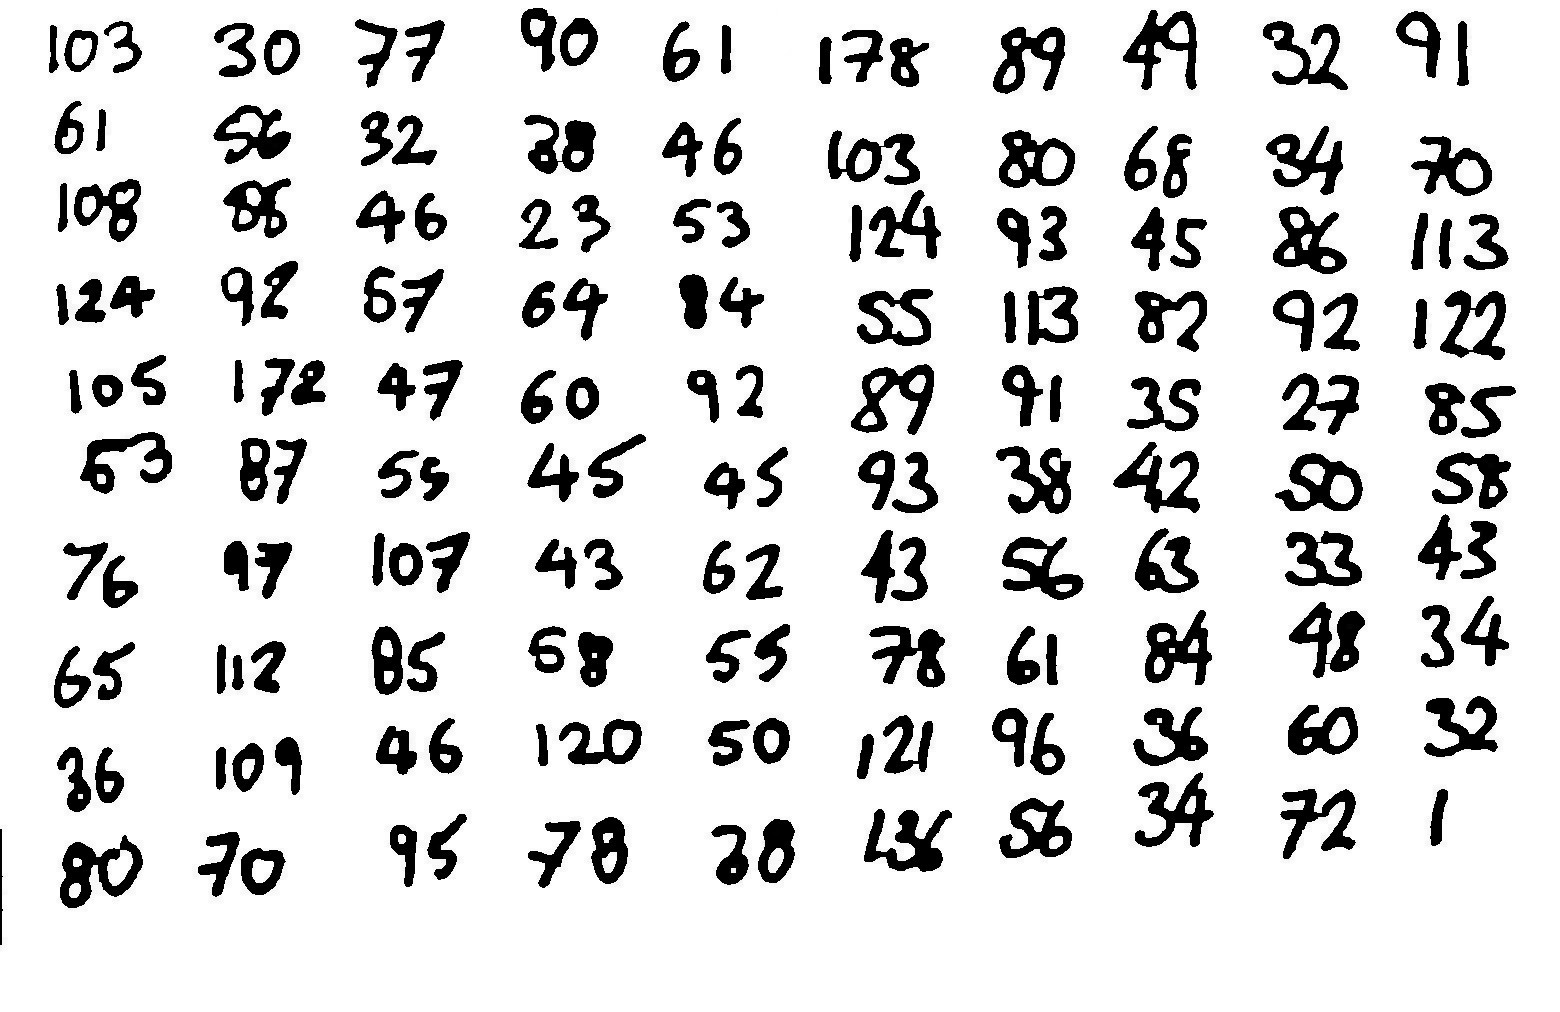 103 30 77 90 61 178 89 49 32 91
61 56 32 38 46 103 80 68 34 70
108 86 46 23 53 124 93 45 86 113
124 92 67 64 84 55 113 82 92 122
105 172 47 60 92 89 91 35 27 85
53 87 55 45 45 93 38 42 50 58
76 97 107 43 62 43 56 63 33 43
65 112 85 68 55 78 61 84 48 34
36 109 46 120 50 121 96 36 60 32
80 70 95 78 38 136 56 34 72 1